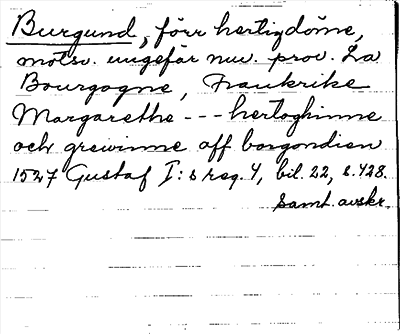 Burgund, förr hertigdöme,
motsv. ungefär nuv. prov. La
Bourgogne, Frankrike
Margarethe --- hertoghinne
och grewinne aff borgondien
1527 Gustaf I:s reg. 4, bil. 22, s. 428.
Samt. avskr.